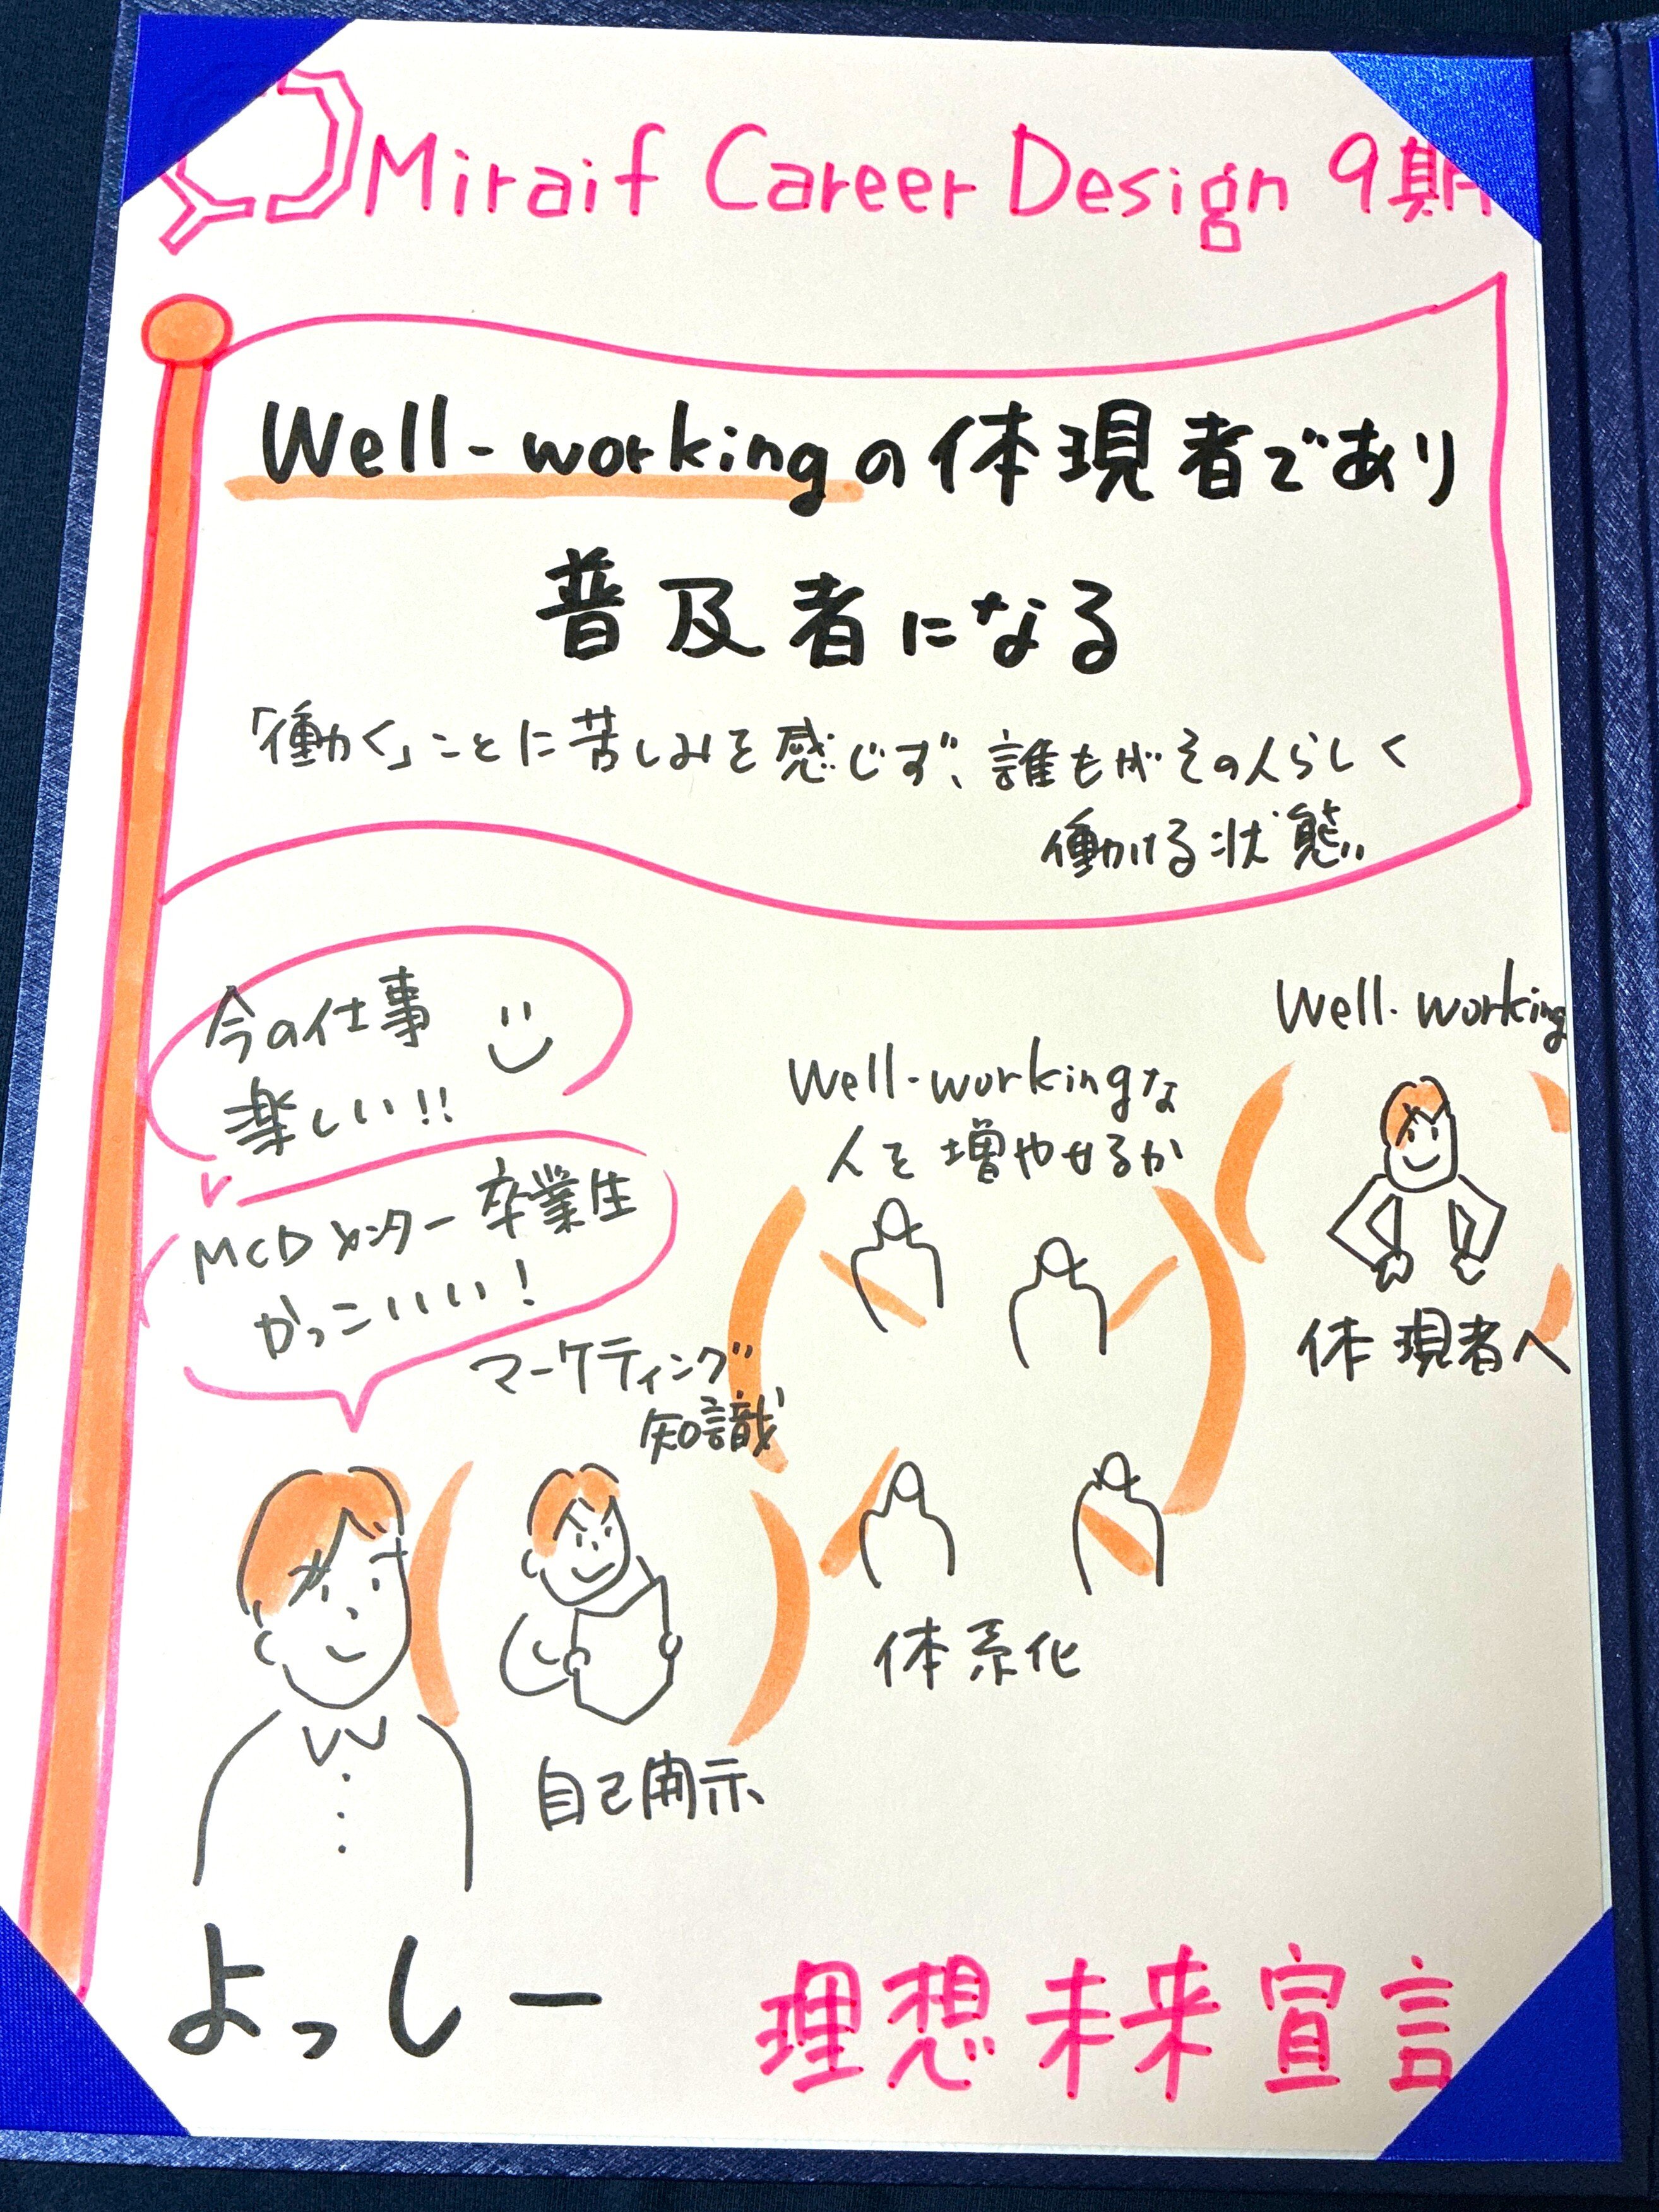 Miraif Career Design 9期
Well-workingの体現者であり
普及者になる
「働く」ことに苦しみを感じず、誰もがその人らしく
働ける状態
今の仕事
楽しい!!
MCDメンター卒業生
かっこいいい!
マーケティング
知識
自己開示
Well-workingな
人を増やせるか
体系化
Well-working
体現者へ
よっしー
理想未来宣言